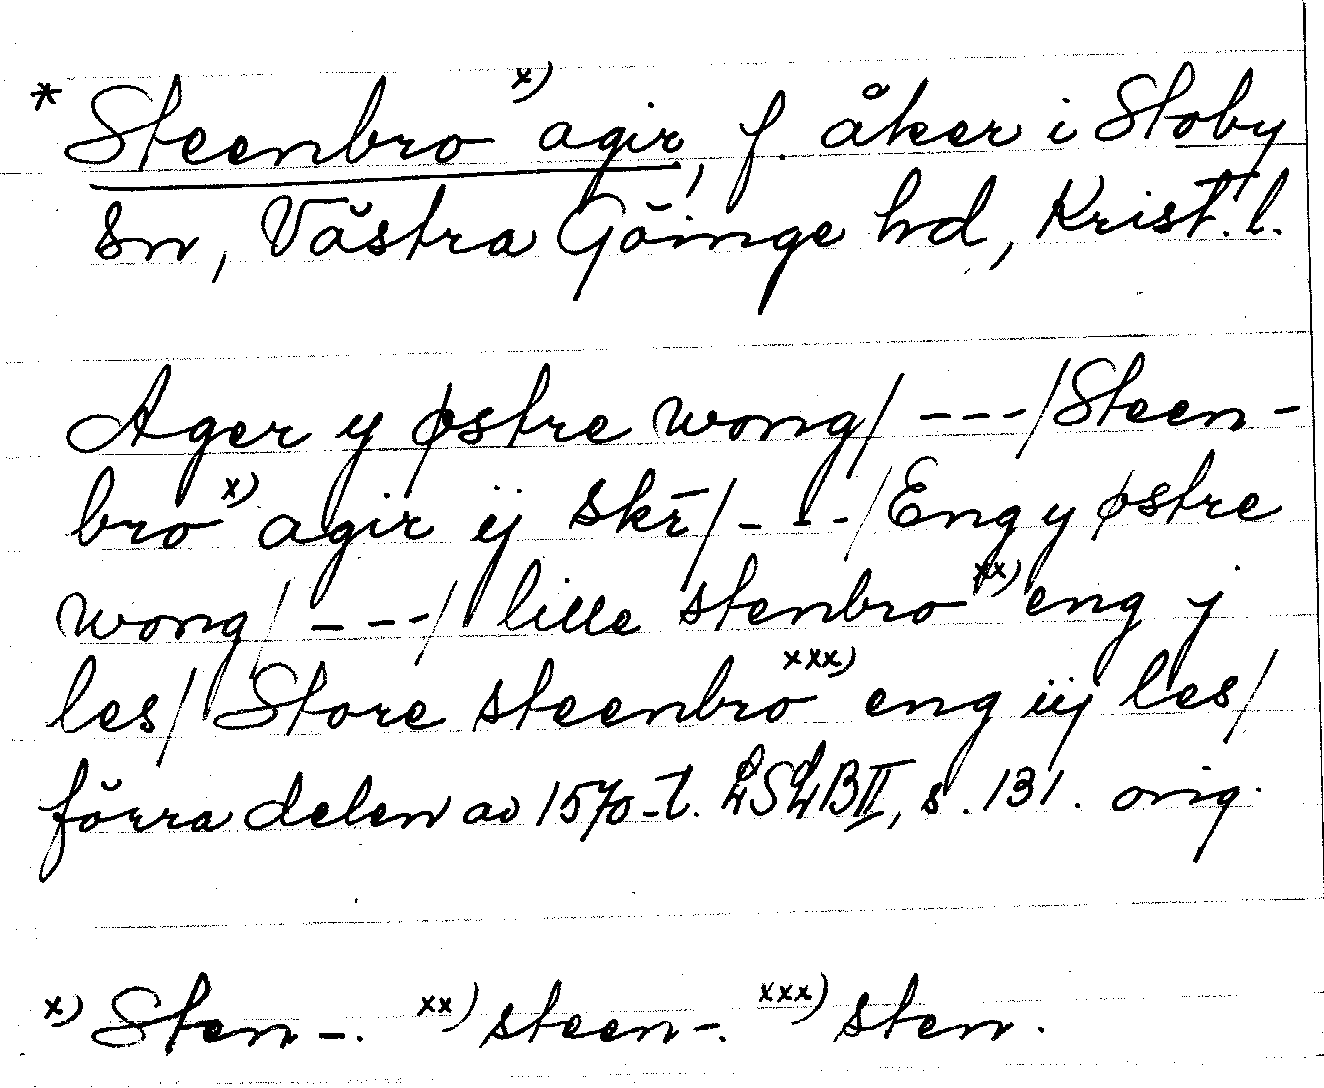 * Steenbro x) agir, f. åker i Stoby
sn, Västra Göinge hd, Krist. l.
Ager y østre wong/ ---/Steen-
bro x) agir ij skr̄/ - - - /Eng y østre
wong/ ---/ lille stenbro xx) eng j
les/ Store steenbro xxx) eng iij les/
förra delen av 1570-t. LSLB II, s. 131. orig.
x) Sten-. xx) steen-. xxx) sten.